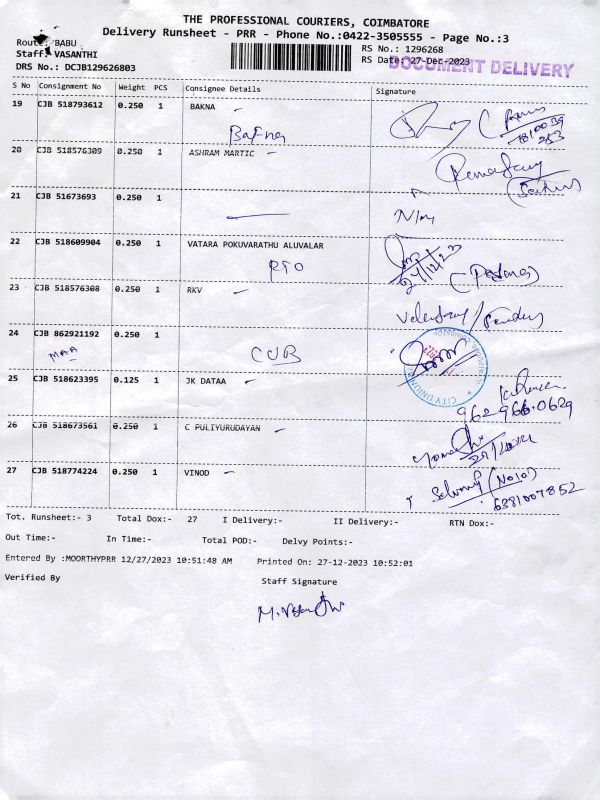 THE PROFESSIONAL COURIERS, COIMBATORE
Delivery Runsheet - PRR - Phone No.:0422-3505555 - Page No.:3
Route: BABU
RS No.: 1296268
Staff: VASANTHI
RS Date: 27-Dec-2023
DOCUMENT DELIVERY
DRS No.: DCJB129626803
S No Consignment No Weight PCS Consignee Details Signature
19 CJB 518793612 0.250 1 BAKNA -
Bafna
20 CJB 518576309 0.250 1 ASHRAM MARTIC -
21 CJB 51673693 0.250 1
22 CJB 518609904 0.250 1 VATARA POKUVARATHU ALUVALAR
RTO
23 CJB 518576308 0.250 1 RKV -
24 CJB 862921192 0.250 1
MAA CUB
CITY UNION
25 CJB 518623395 0.125 1 JK DATAA -
962 966 0629
26 CJB 518673561 0.250 1 C PULIYURUDAYAN -
27 CJB 518774224 0.250 1 VINOD -
6381007852
Tot. Runsheet:- 3 Total Dox:- 27 I Delivery:- II Delivery:- RTN Dox:-
Out Time:- In Time:- Total POD:- Delvy Points:-
Entered By :MOORTHYPRR 12/27/2023 10:51:48 AM Printed On: 27-12-2023 10:52:01
Verified By Staff Signature